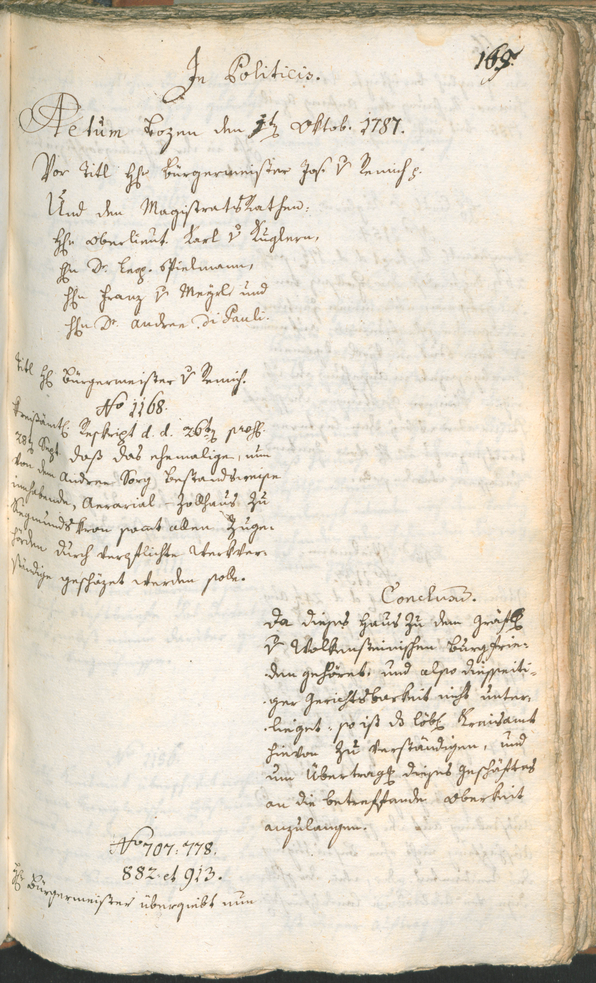 169.
In Politicis.
Actum Bozen den 1t Oktob. 1787.
Vor Titl Hh. Bürgermeister Jos. v Remich p.
Und den Magistrats Räthen:
Hh. Oberlieut. Karl v Kuglern,
Hn Dr. Leop. Spielmann,
Hn Franz v Meyrl, und
Hn Dr. Andree Di Pauli.
Titl H. Bürgermeister v Remich.
No 1168.
Kreisämtl. Reskript d. d. 26t praes.
28t Sept. daß das ehemalige, nun
von dem Andree Sorg Bestandsweise
inhabende, Aerarial-Zollhaus zu
Sigmundskron samt allen Zuge-
hörden durch verpflichte Werkver-
ständige geschäzet werden solle.
Conclusum.
Da dieses Haus zu dem Gräfl.
v Wolkensteinischen Burgfrie-
den gehöret, und also diesseiti-
ger Gerichtsbarkeit nicht unter-
lieget: so ist d löbl. Kreisamt
hievon zu verständigen, und
um Übertragl. dieses Geschäftes
an die betreffende Oberkeit
anzulangen.
No 707. 778.
882 et 913.
H. Bürgermeister übergiebt nun